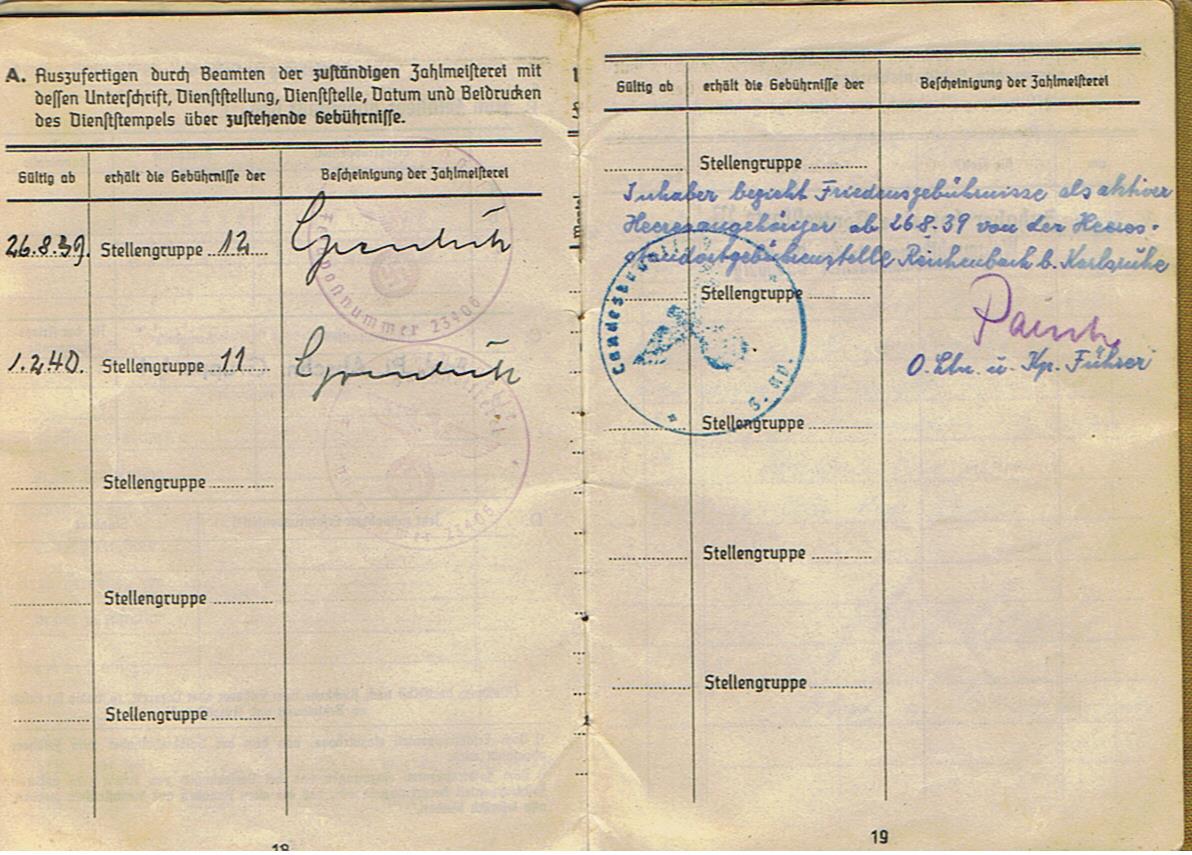 A. Auszufertigen durch Beamten der zuständigen Zahlmeisterei mit
dessen Unterschrift, Dienststellung, Dienststelle, Datum und Beidrucken
des Dienststempels über zustehende Gebührnisse.
Gültig ab erhält die Gebührnisse der Bescheinigung der Zahlmeisterei
26.8.39. Stellengruppe 12
Feldpostnummer 23406
1.2.40. Stellengruppe 11
23406
Stellengruppe
Stellengruppe
Stellengruppe
18
Gültig ab erhält die Gebührnisse der Bescheinigung der Zahlmeisterei
Stellengruppe
Inhaber bezieht Friedensgebührnisse als aktiver
Heeresangehöriger ab 26.8.39 von der Heeres-
standortgebührenstelle Reichenbach b. Karlsruhe
Stellengruppe
O. Ltn. u. Kp. Führer
Stellengruppe
Stellengruppe
Stellengruppe
19